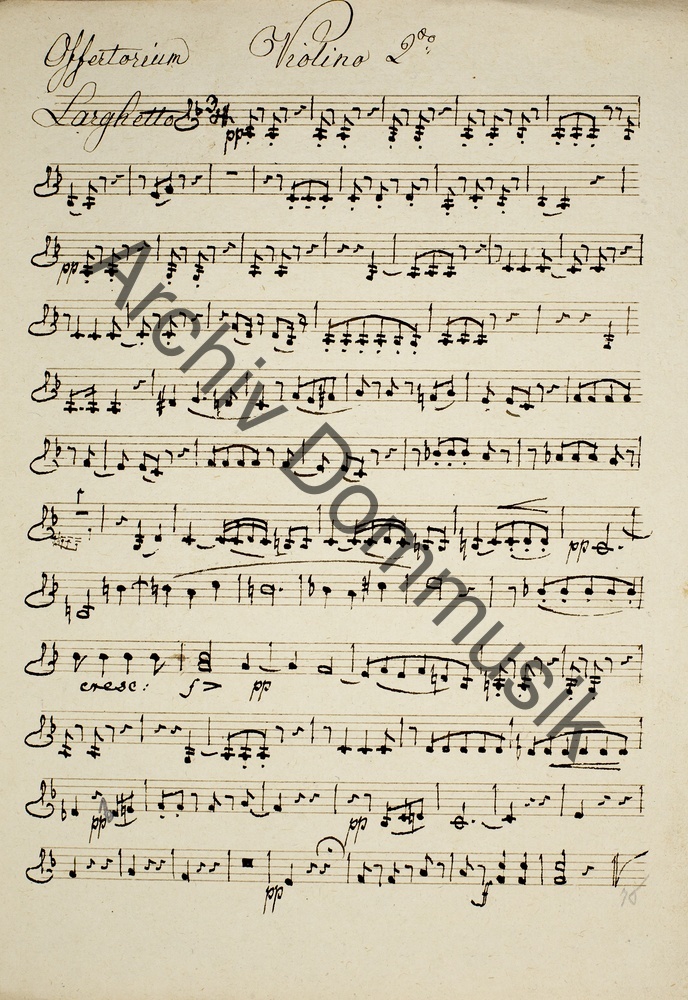 Offertorium Violino 2do:
Larghetto 3/4 pp
pp
pp
cresc: f> pp
pp pp
pp f
76
Archiv Dommusik